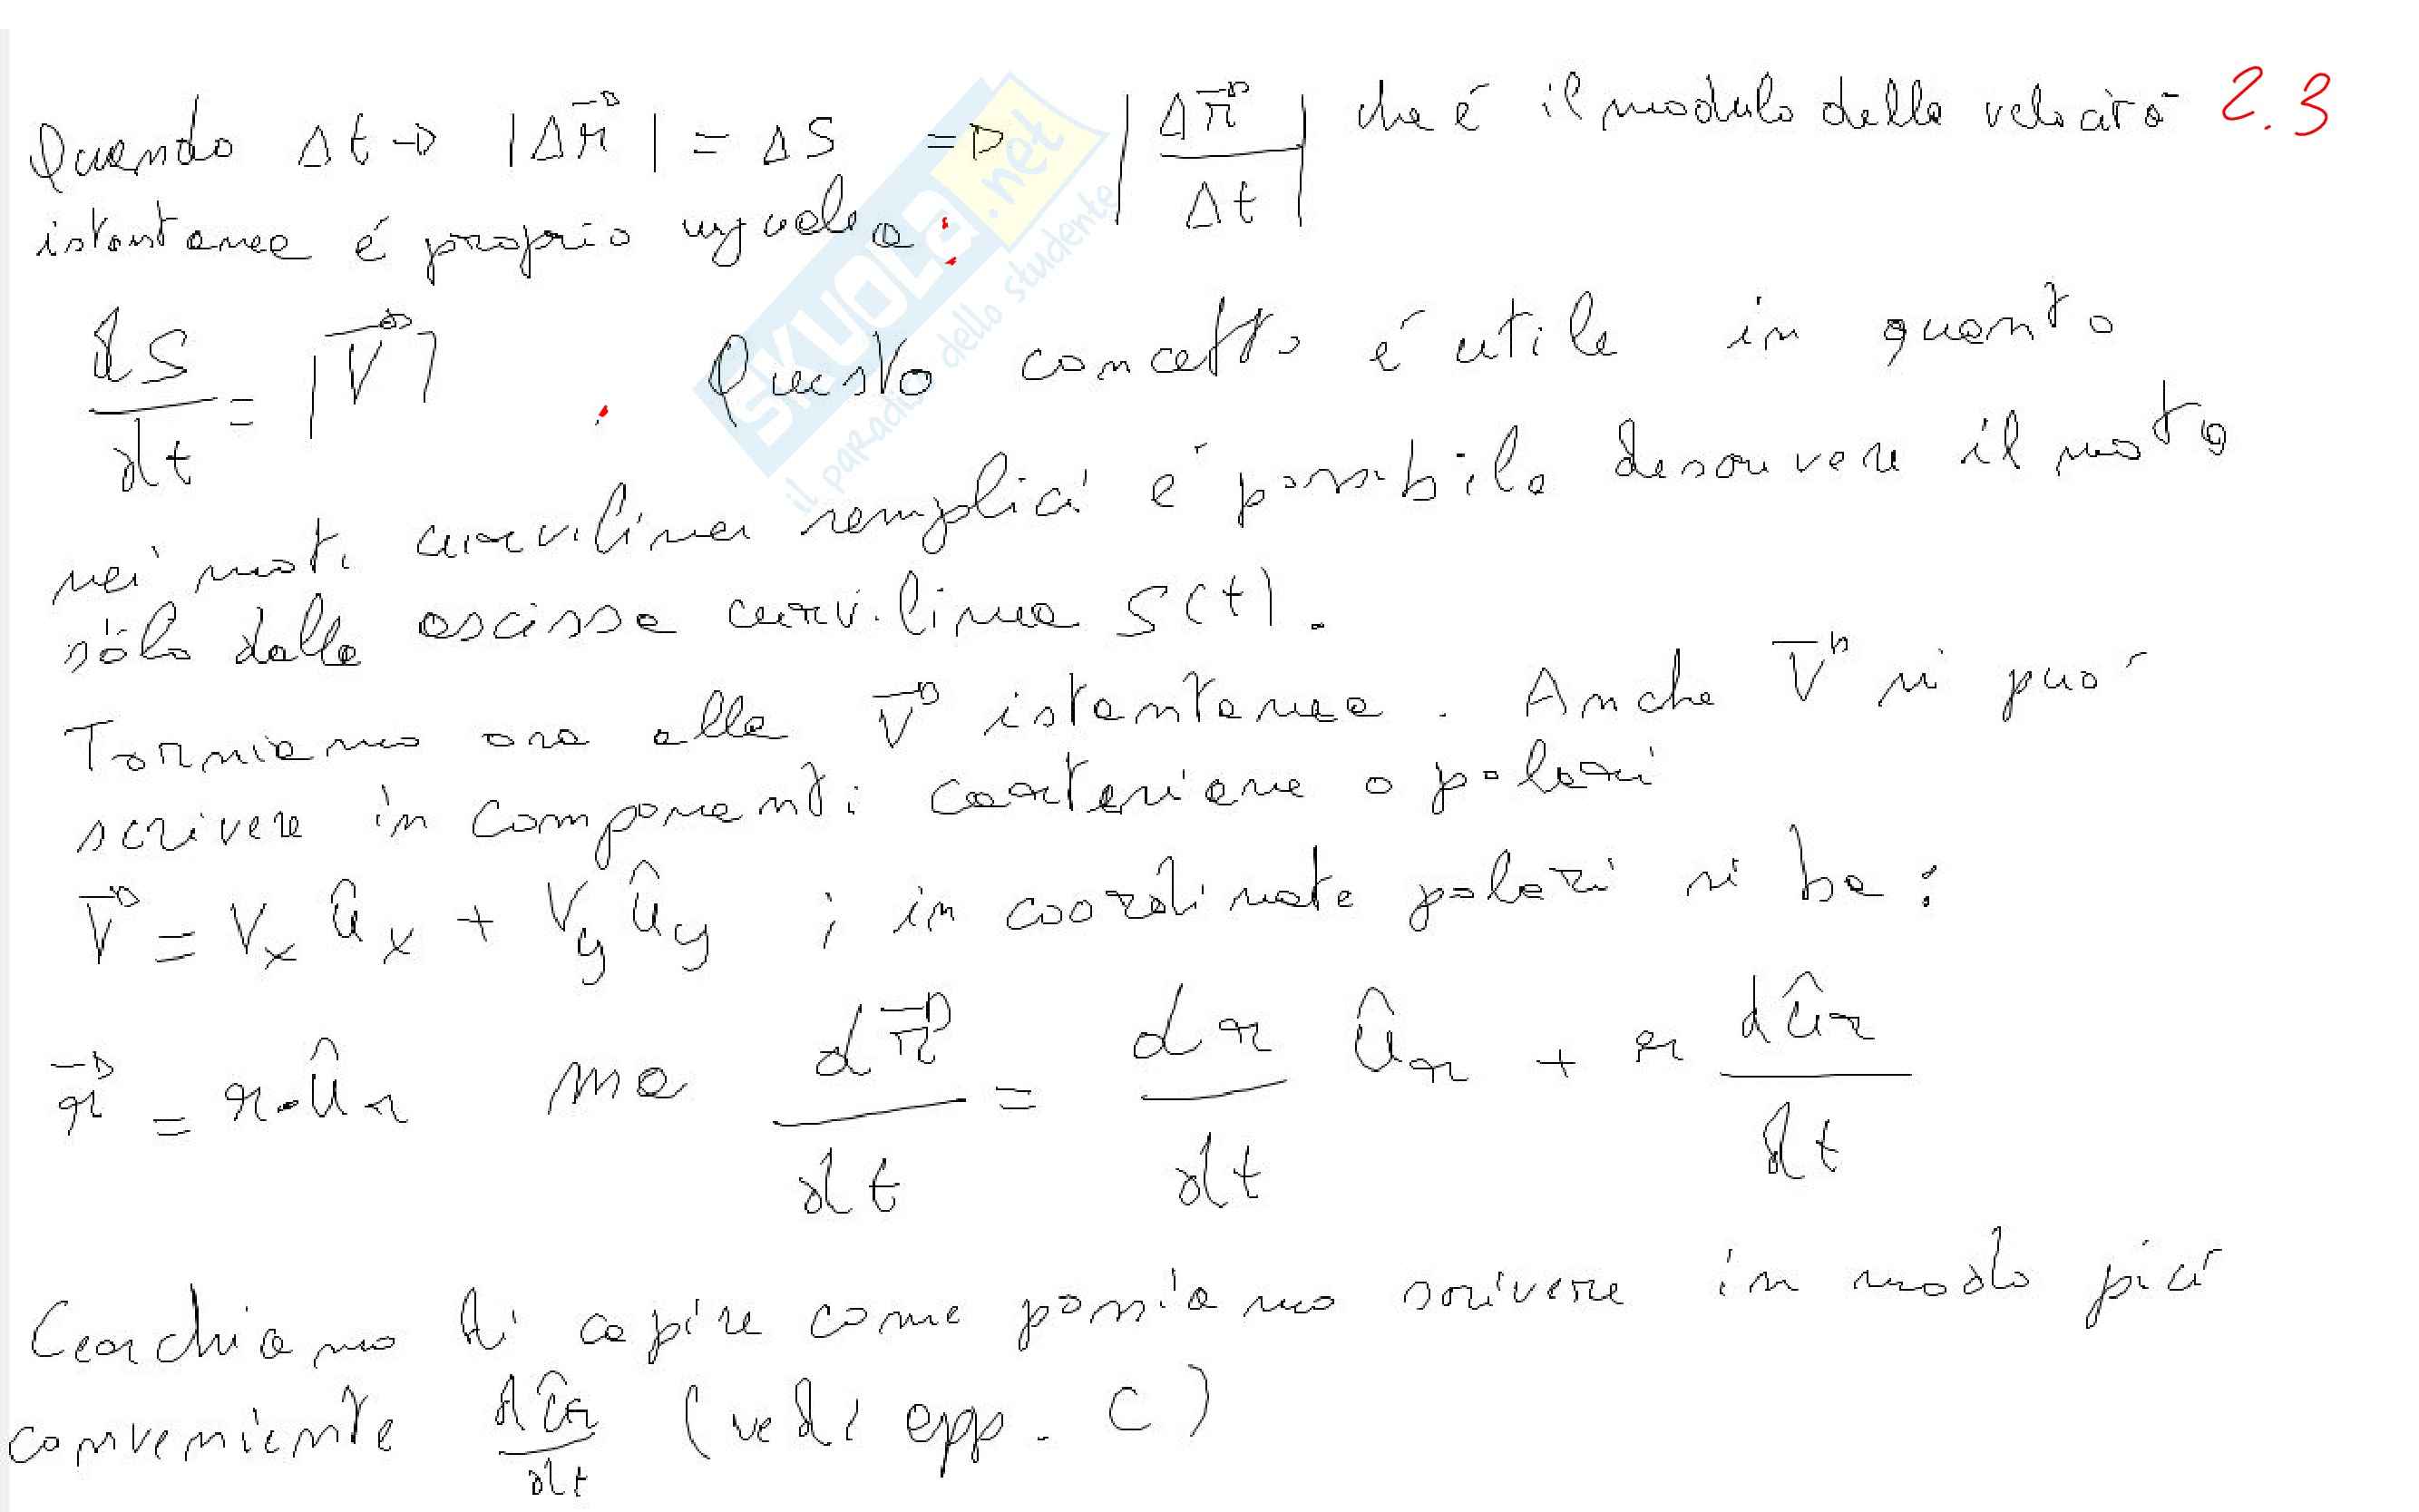 Quando Δt → |Δr⃗| = ΔS ⇒ |Δr⃗/Δt| che é il modulo della velocità 2.3
istantanea é proprio uguale a:
dS/dt = |V⃗| . Questo concetto é utile in quanto
nei moti curvilinei semplici é possibile descrivere il moto
sólo dalla ascissa curvilinea S(t).
Torniamo ora alla V⃗ istantanea. Anche V⃗ si puó
scrivere in componenti cartesiane o polari
V⃗ = Vx ûx + Vy ûy ; in coordinate polari si ha:
r⃗ = r·ûr ma dr⃗/dt = dr/dt ûr + r dûr/dt
Cerchiamo di capire come possiamo scrivere in modo piú
conveniente dûr/dt (vedi app. C)
SKUOLA.net
il paradiso dello studente